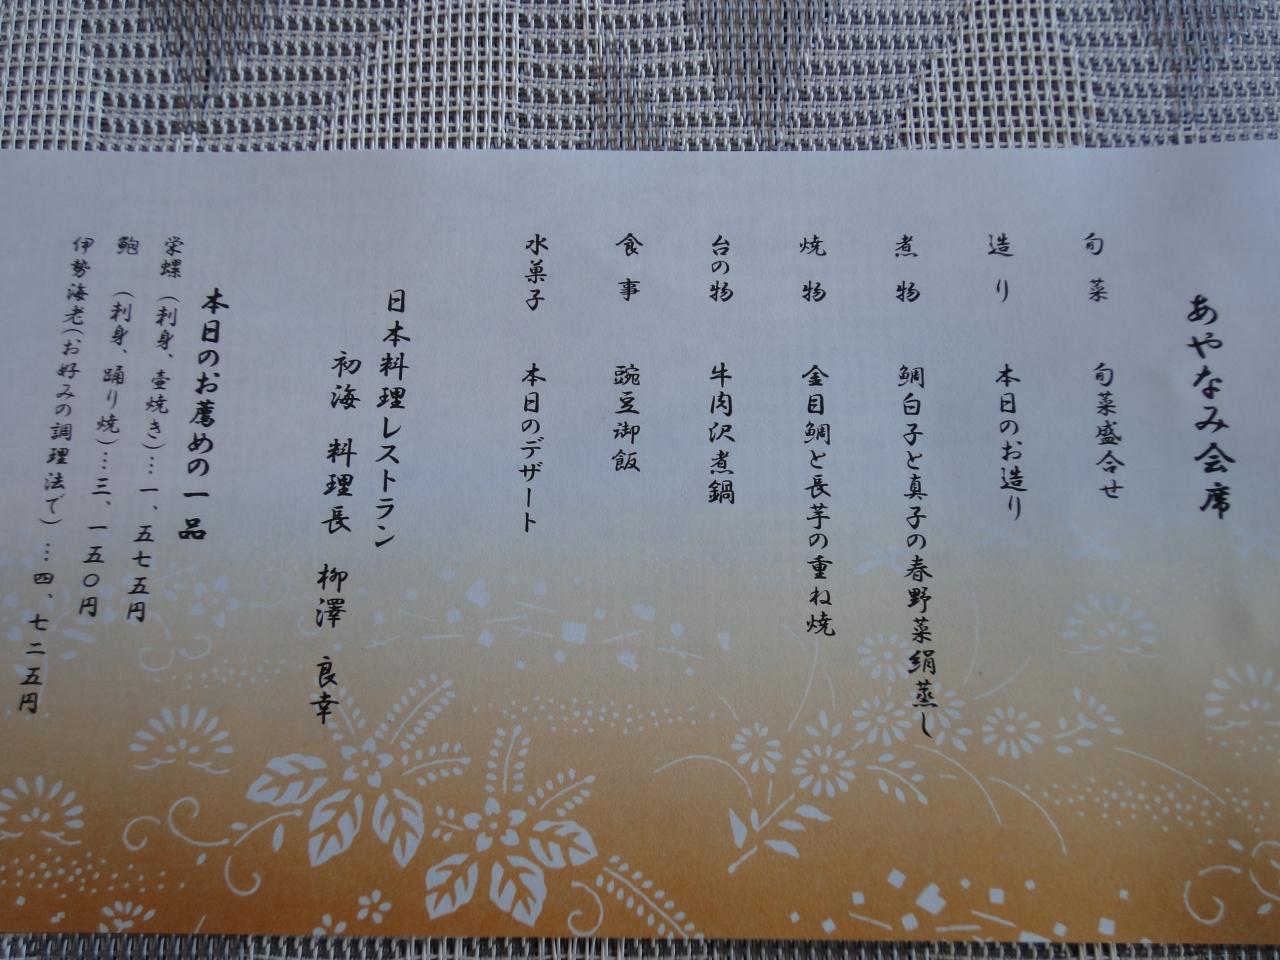 あやなみ会席
旬菜 旬菜盛合せ
造り 本日のお造り
煮物 鯛白子と真子の春野菜絹蒸し
焼物 金目鯛と長芋の重ね焼
台の物 牛肉沢煮鍋
食事 豌豆御飯
水菓子 本日のデザート
日本料理レストラン
初海 料理長 柳澤 良幸
本日のお薦めの一品
栄螺（刺身、壷焼き）…一、五七五円
鮑（刺身、踊り焼）…三、一五〇円
伊勢海老（お好みの調理法で）…四、七二五円